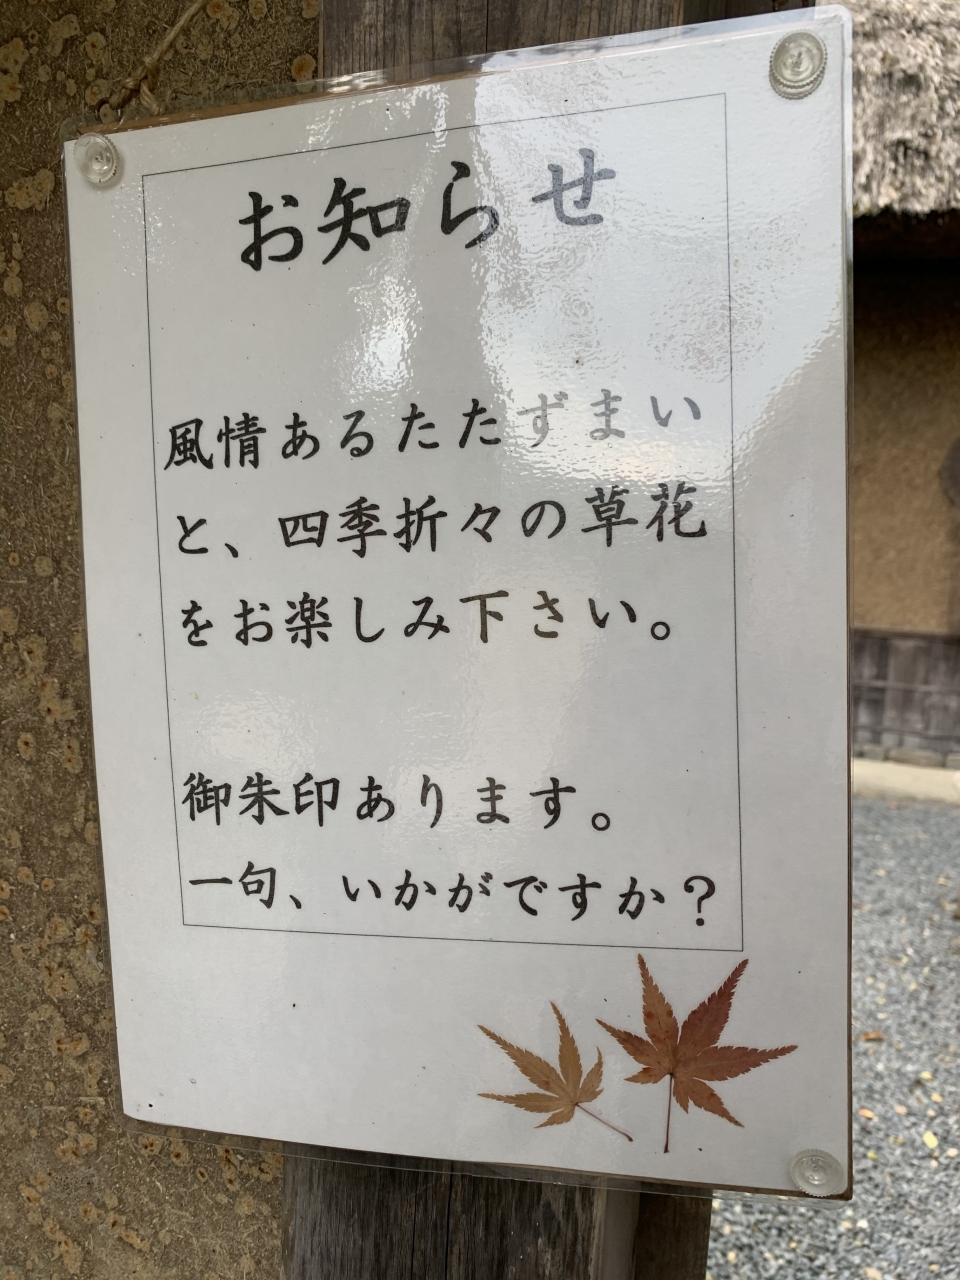 お知らせ
風情あるたたずまい
と、四季折々の草花
をお楽しみ下さい。
御朱印あります。
一句、いかがですか？